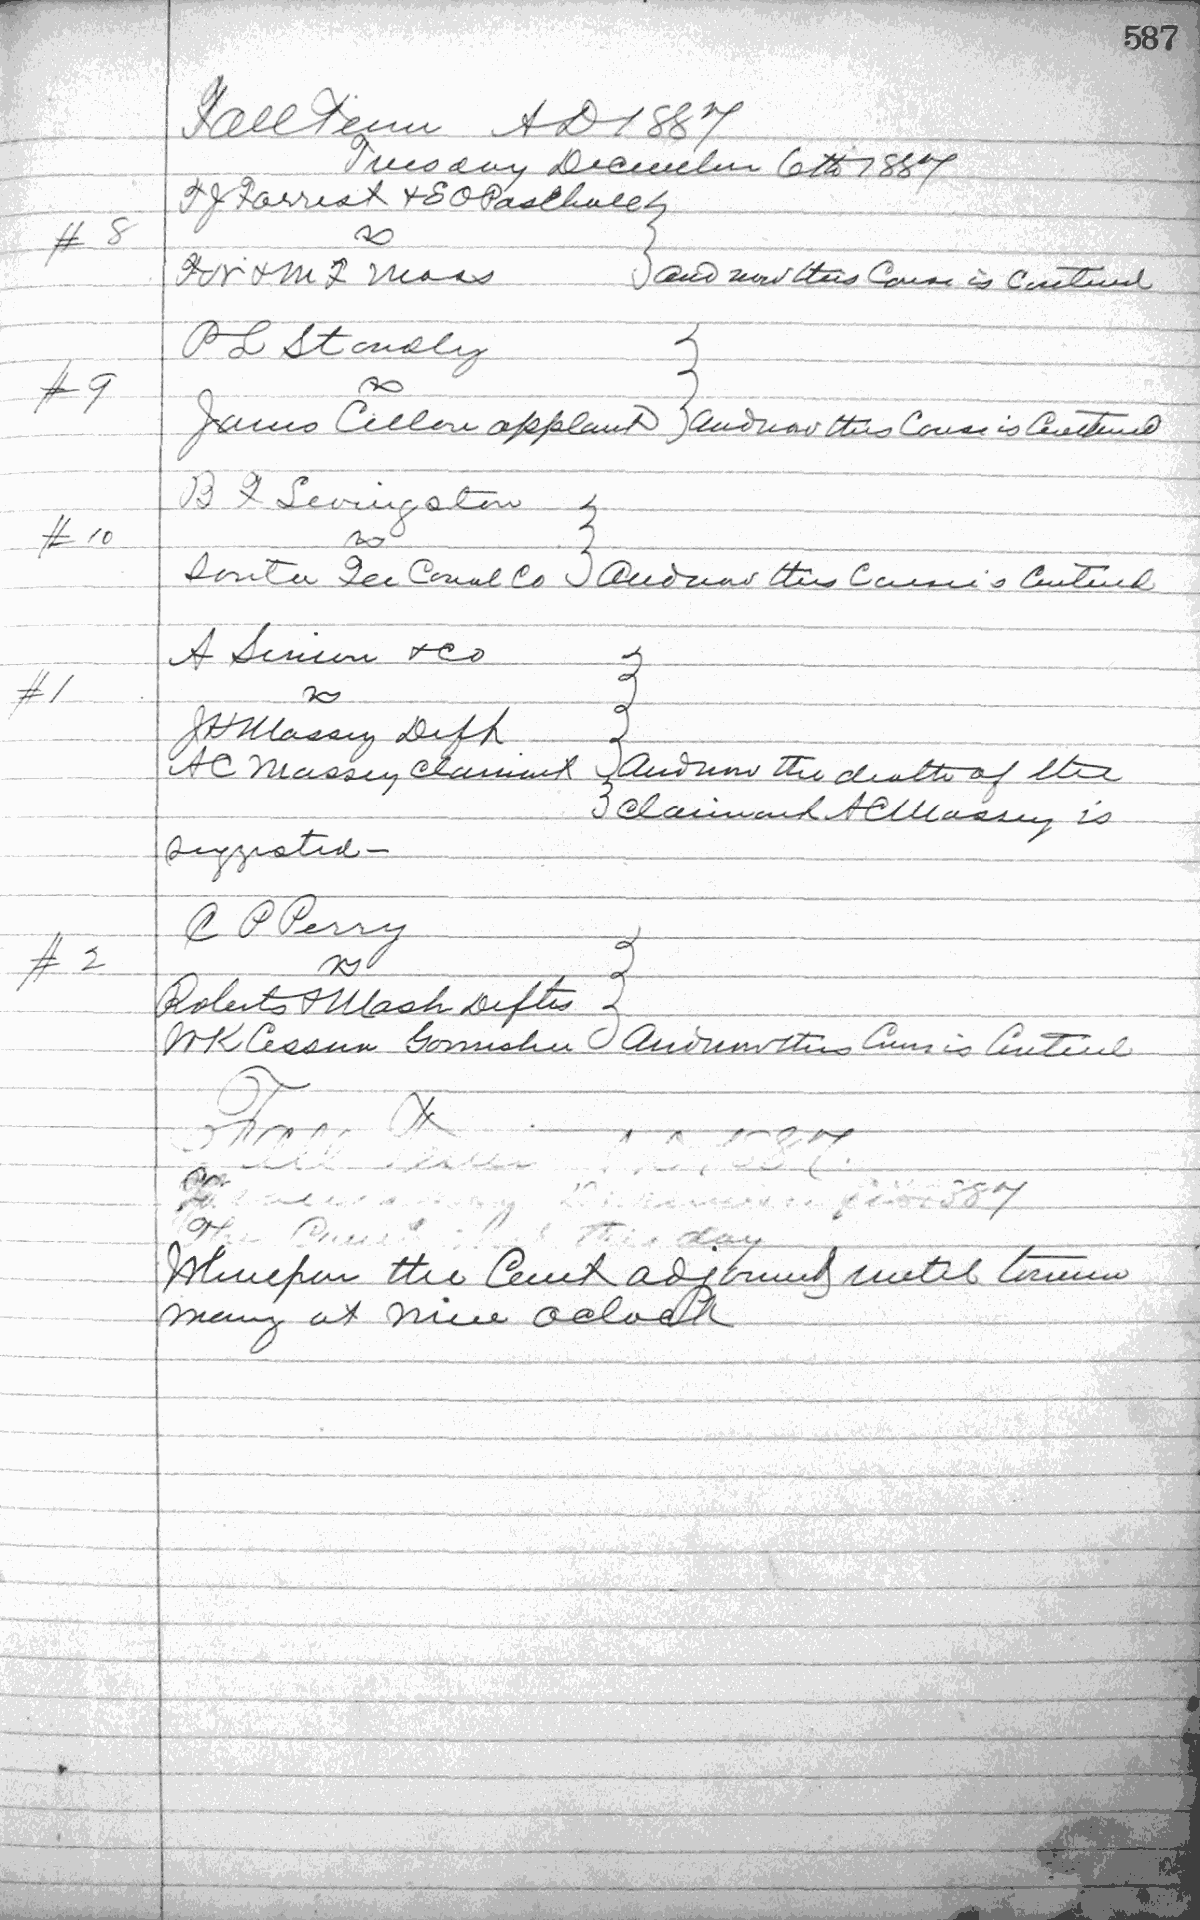 587
Fall Term AD 1887
Tuesday December 6th 1887
F J Forrest & E O Paschall
#8 vs
& M F Moss } and now this Cause is Continued
P L Standly
#9 vs
James Cellon applant } and now this Cause is Continued
B F Levingston
#10 vs
Santa Fee Canal Co } and now this Cause is Continued
A Simon & Co
#1 vs
J H Massey Deft
A C Massey claimant } and now the death of the
} claimant A C Massey is
suggested –
C P Perry
#2 vs
Roberts & Mash Defts
W K Cessna Garnishee } and now this Cause is Continued
Fall Term A D 1887.
December 1887
The this day
Whereupon the Court adjourned until tomorrow
morning at nine oclock